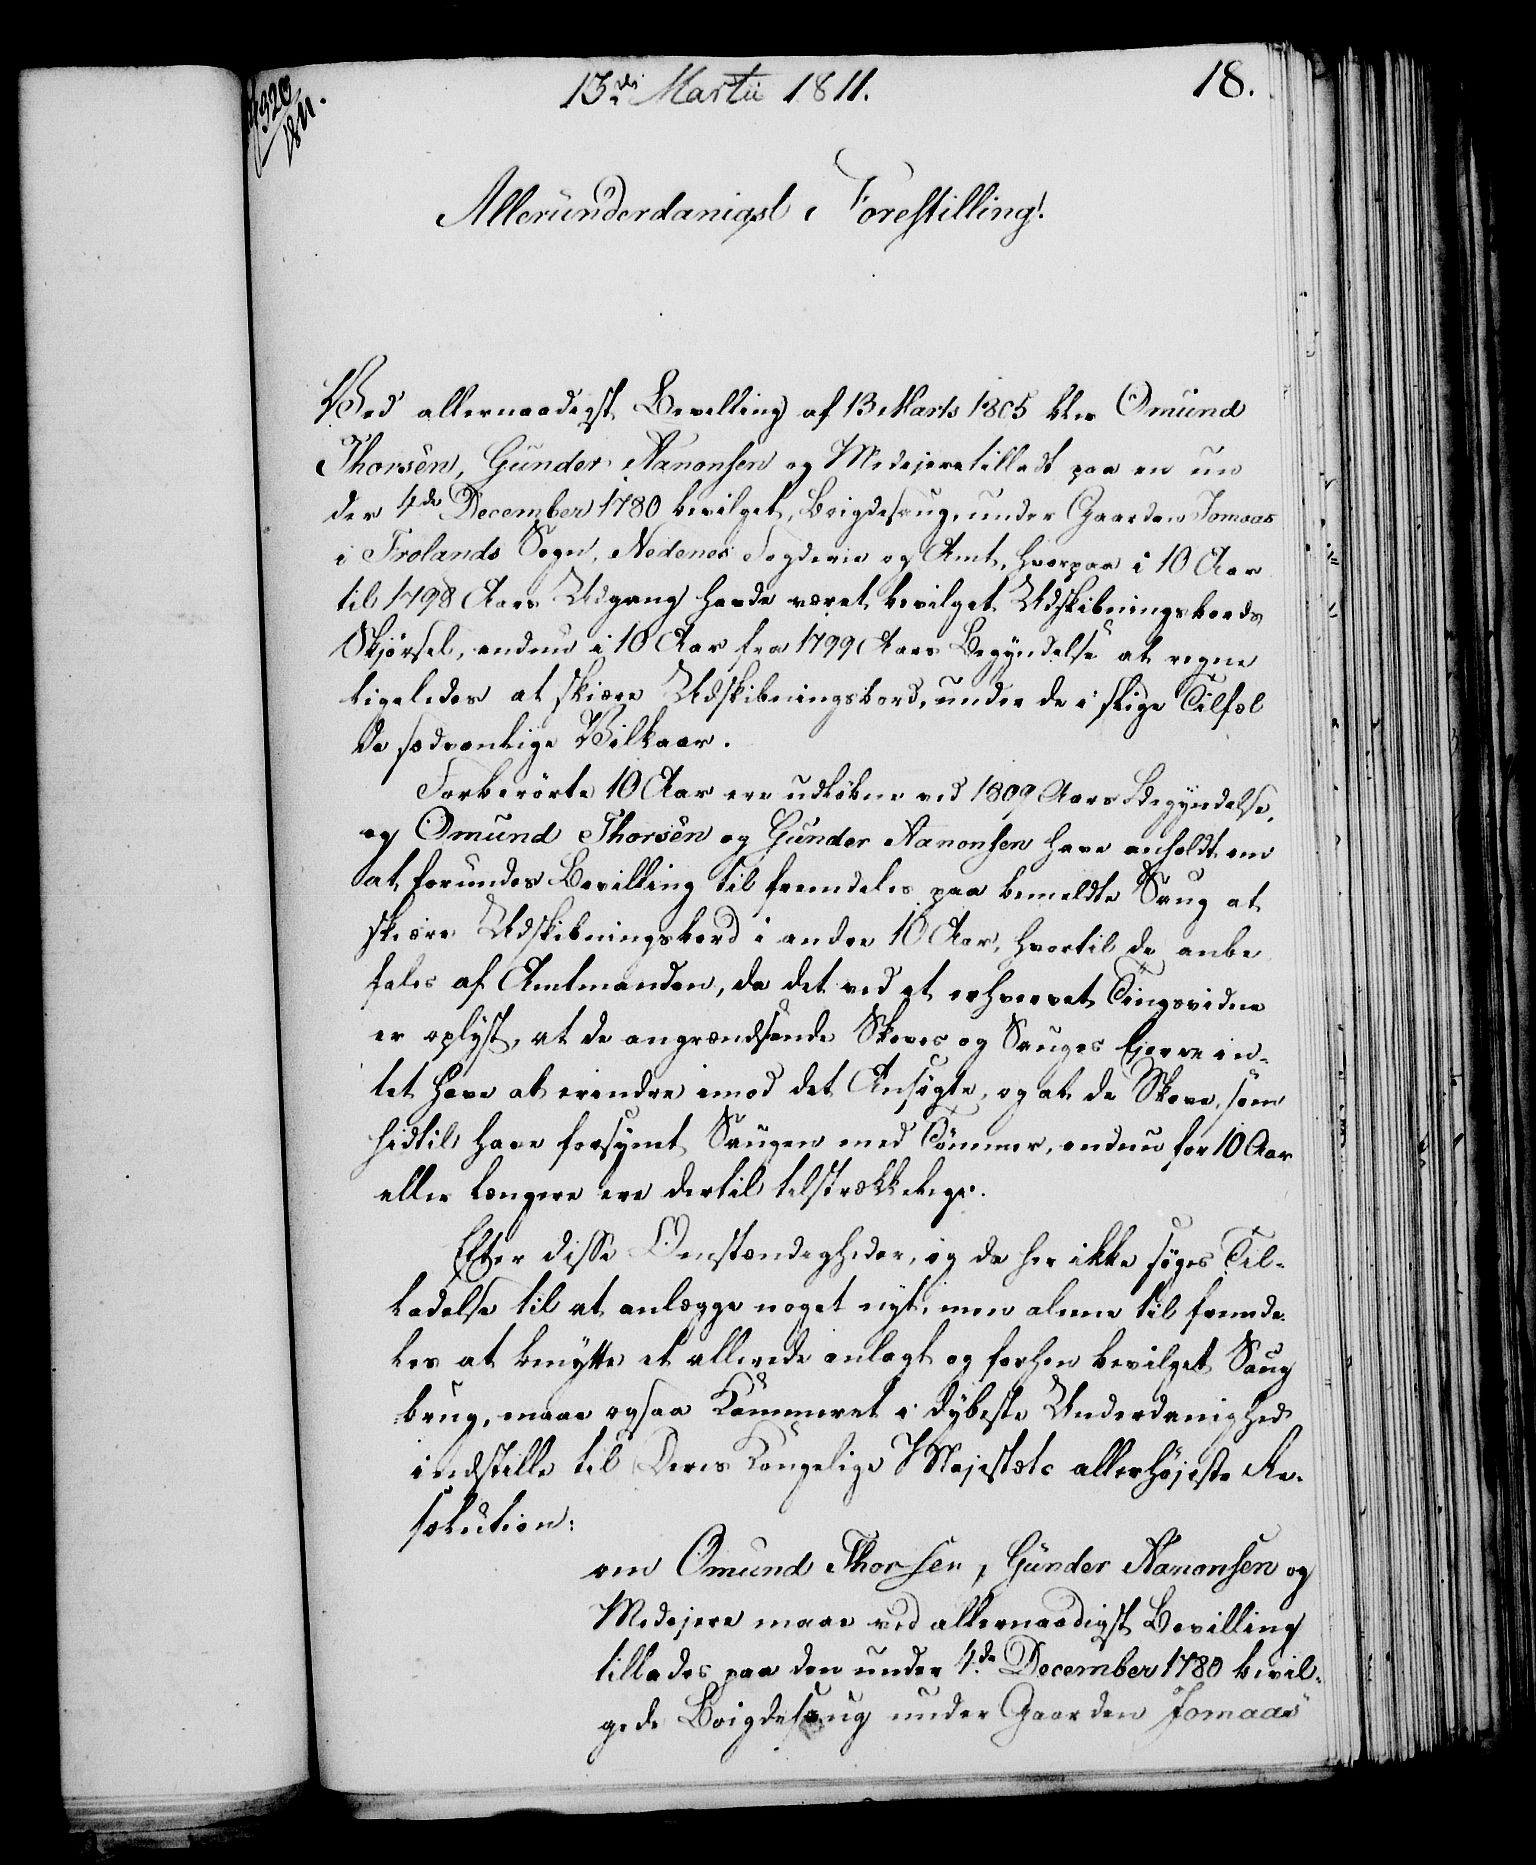 320
1811.
13de Martii 1811.
18.
Allerunderdanigst Forestilling!
Ved allernaadigst Bevilling af 13 Marts 1805 blev Omund
Thorsen, Gunder Aanonsen og Medejere tilladt paa en un
der 4de December 1780 bevilget, Boigdesaug, under Gaarden Jomaas
i Frolands Sogn, Nedenes Fogderie og Amt, hvorpaa i 10 Aar
til 1798 Aars Udgang havde været bevilget Udskibningsbords
Skjørsel, endnu i 10 Aar fra 1799 Aars Begyndelse at regne
ligeledes at skiære Udskibningsbord, under de i slige Tilfæl
de sædvanlige Vilkaar.
Forberørte 10 Aar ere udløbne ved 1809 Aars Begyndelse,
og Omund Thorsen og Gunder Aanonsen have anholdt om
at forundes Bevilling til fremdeles paa bemeldte Saug at
skiære Udskibningsbord i andre 10 Aar, hvortil de anbe
fales af Amtmanden, da det ved et erhvervet Tingsvidne
er oplyst, at de angrændsende Skoves og Sauges Ejere in-
tet have at erindre imod det Ansøgte, og at de Skove, som
hidtil have forsynt Saugen med Tømmer, endnu for 10 Aar
eller længere ere dertil tilstrækkelige.
Efter disse Omstændigheder, og da her ikke søges Til-
ladelse til at anlægge noget nyt, men alene til fremde-
les at benytte et allerede anlagt og forhen bevilget Saug
brug, maae ogsaa Kammeret i dybeste Underdanighed
indstille til Deres Kongelige Majestæts allerhøjeste Re-
solution:
om Omund Thorsen, Gunder Aanonsen og
Medejere maae ved allernaadigst Bevilling
tillades paa den under 4de December 1780 bevil-
gede Boigdesaug under Gaarden Jomaas